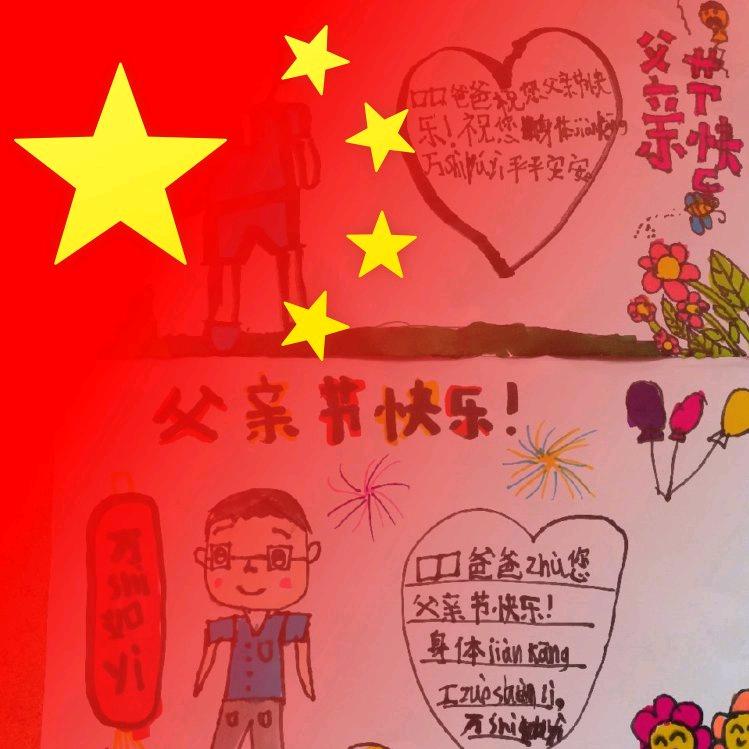 口口爸爸祝您父亲节快
乐!祝您身体jiankāng
万shìrúyì平平安安。
父亲
节快
父亲节快乐!
万shì如yì
口口爸爸zhù您
父亲节快乐!
身体jiànkāng
工zuòshùnlì,
万shì